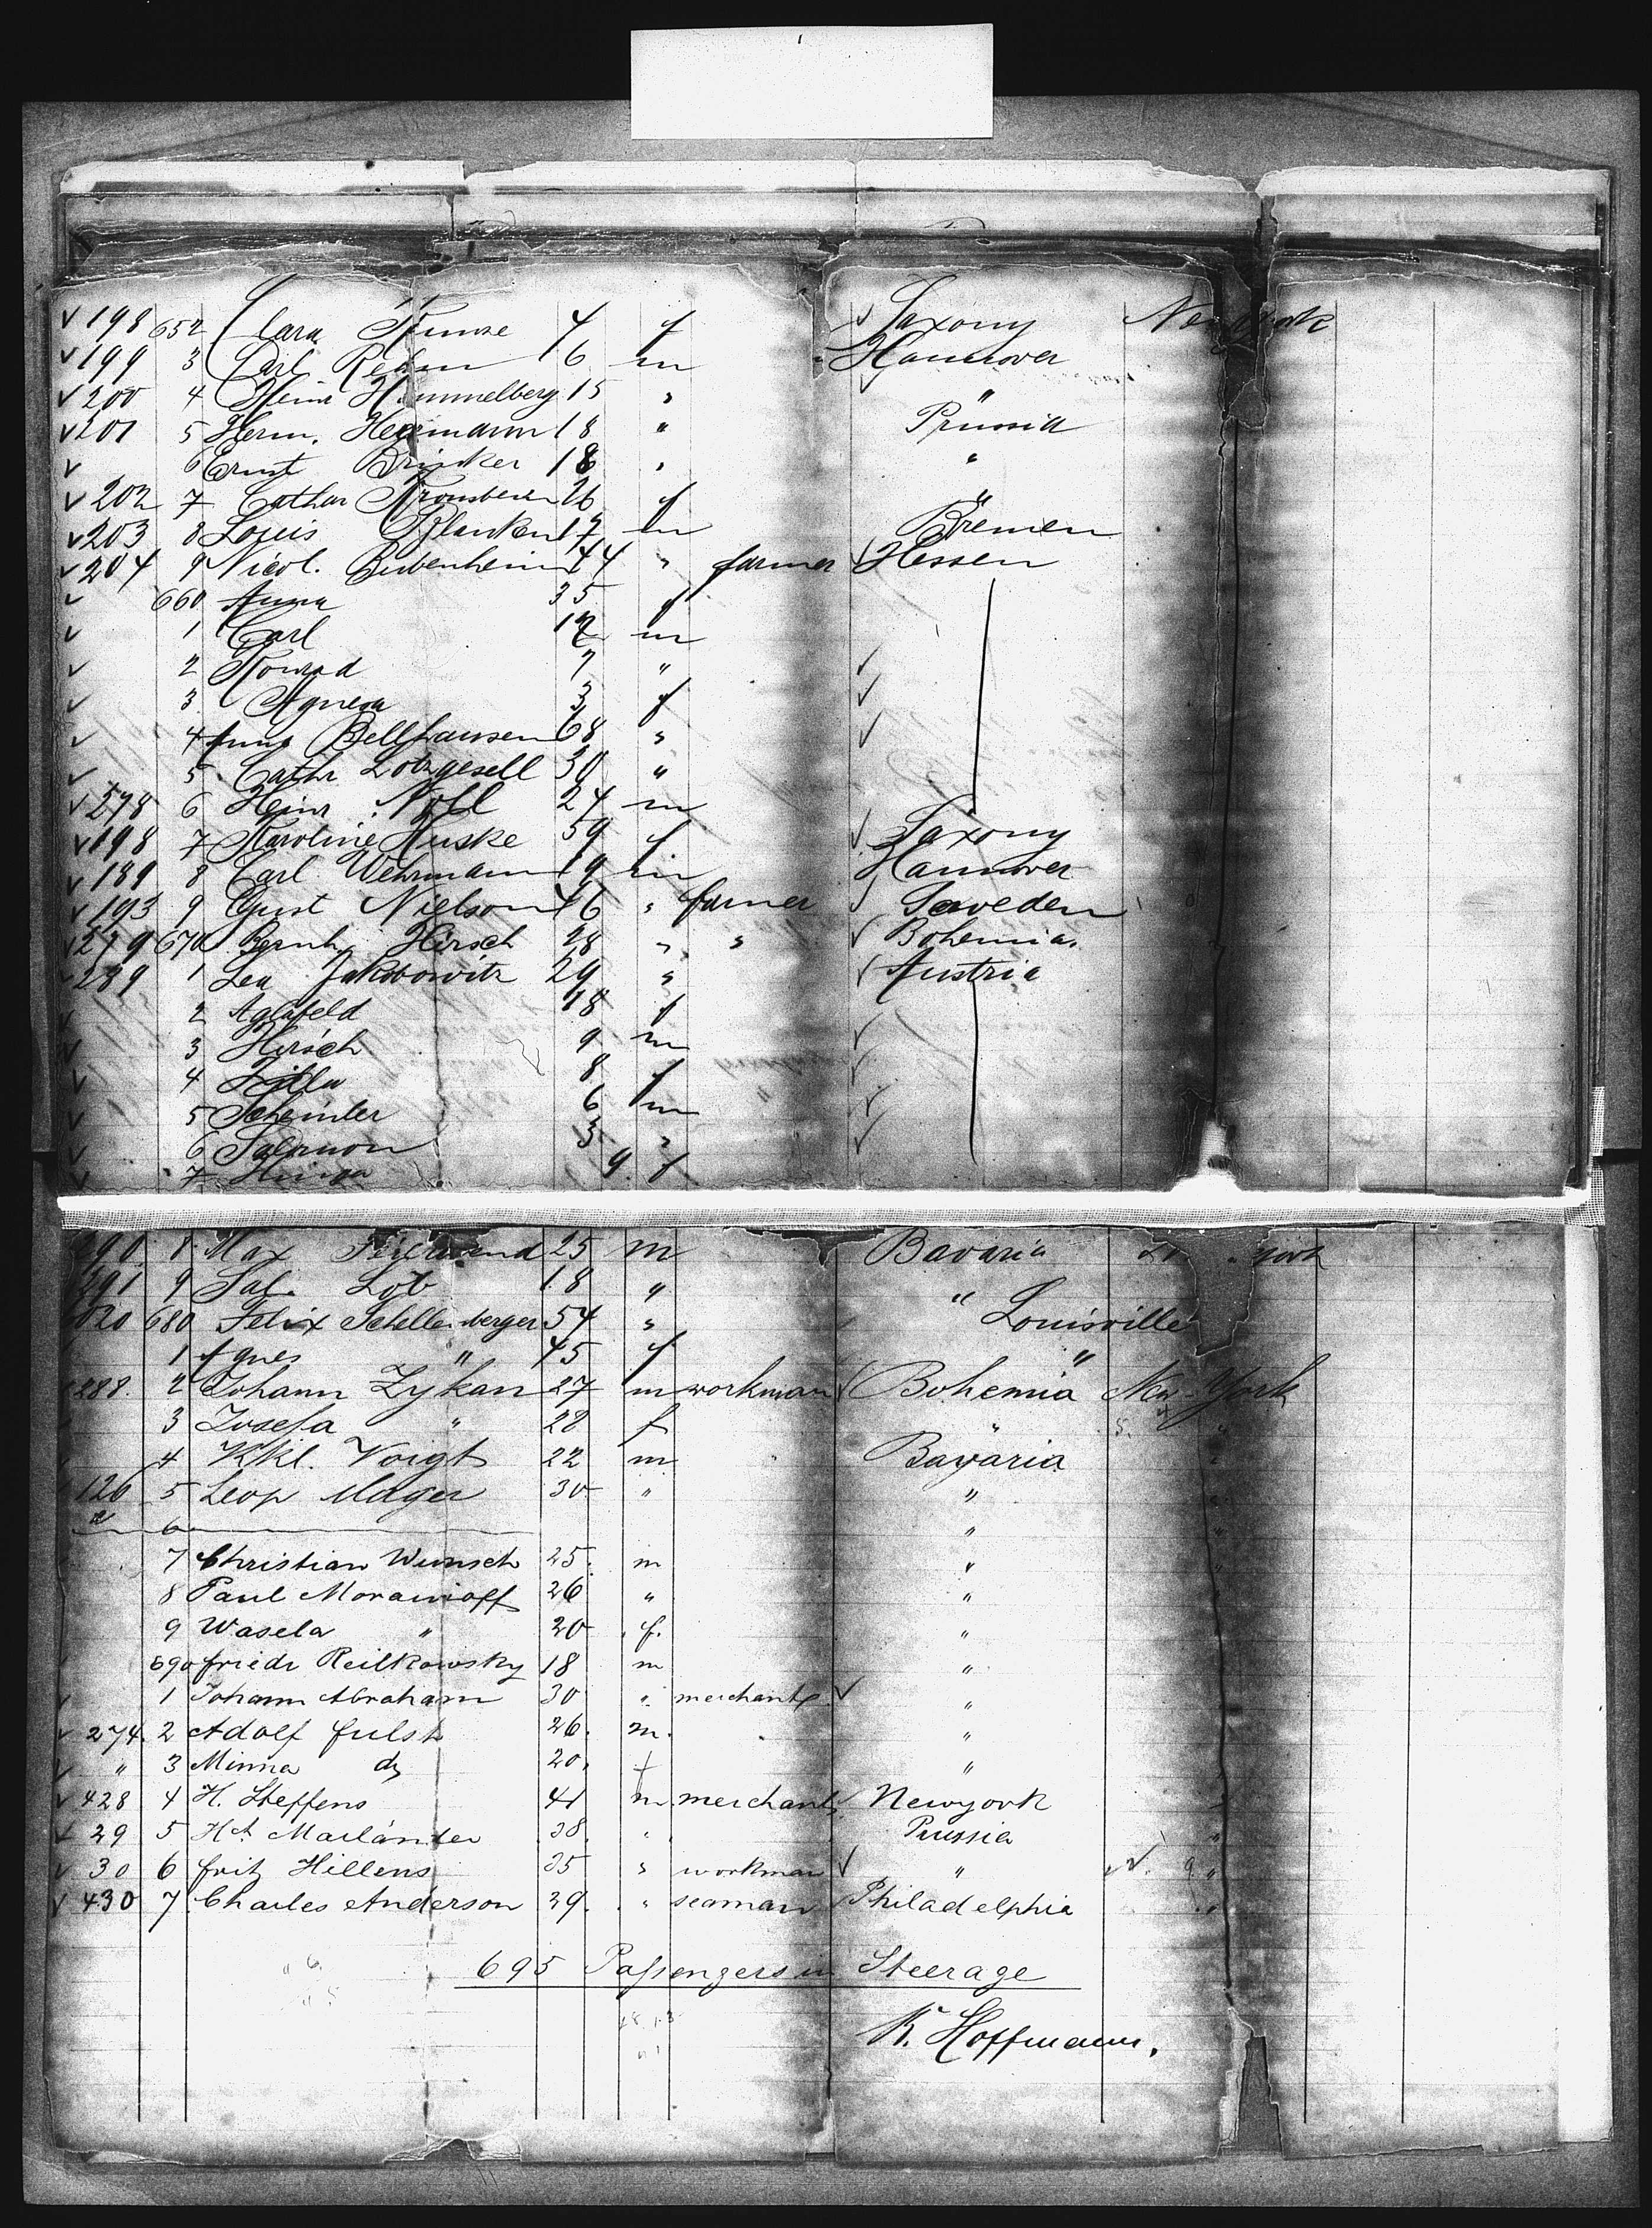 ✓ 198 652 Clara Kunze 4 f ✓ Saxony New York
✓ 199 3 Carl Rehm 16 m Hannover
✓ 200 4 Heinr Hummelberg 15 " "
✓ 201 5 Herm. Hegemann 18 " Prussia
✓ 6 Ernst Brinker 18 " "
✓ 202 7 Cathar 26 f "
✓ 203 8 Louis Blanken 17 m Bremen
✓ 204 9 Nicol. Bubenheim 44 " farmer ✓ Hessen
✓ 660 Anna 35 f
✓ 1 Carl m
✓ 2 Konrad 7 " ✓
✓ 3 Agnesa 3 f ✓
✓ 4 Anna Bellhausen 68 " ✓
✓ 5 Cathr Lotzgesell 30 "
✓ 278 6 Heinr Noll 24 m
✓ 198 7 Karoline Huske 59 f ✓ Saxony
✓ 189 8 Carl Wehrmann 19 m Hannover
✓ 193 9 Gust Nielson 46 " farmer ✓ Sweden
✓ 279 670 Bernh. Hirsch 28 " " ✓ Bohemia
289 1 Lea Jakobowitz 29 " ✓ Austria
2 18 f ✓
✓ 3 Hirsch 9 m ✓
✓ 4 Zilla 8 f ✓
✓ 5 6 m ✓
✓ 6 Salomon 3 "
✓ 7 9 f
290 8 Max 25 m Bavaria York
291 9 Sal. Löb 18 " "
680 Felix Schellenberger 54 " Louisville
1 Agnes " 45 f "
288. 2 Johann Zykan 27 m workman ✓ Bohemia New York
3 Josefa " 28 f " "
4 Voigt 22 m Bavaria "
126 5 Leop Mager 30 " " "
" 6 " "
7 Christian Wunsch 25. m " "
8 Paul Morawioff 26 " "
9 Wasela " 20 f. "
690 friedr Reilkowsky 18 m "
✓ 1 Johann Abraham 30 " merchant ✓ "
✓ 274. 2 Adolf fulsh 26. m. "
✓ " 3 Minna do 20. f "
✓ 428 4 H. Steffens 41 m. merchant ✓ Newyork "
29 5 Ht. Marländer 38. " Prussia "
✓ 30 6 fritz Hillens 35 " workman ✓ " "
✓ 430 7 Charles Anderson 39. " seaman ✓ Philadelphia "
695 Passengers in Steerage
R. Hoffmann.